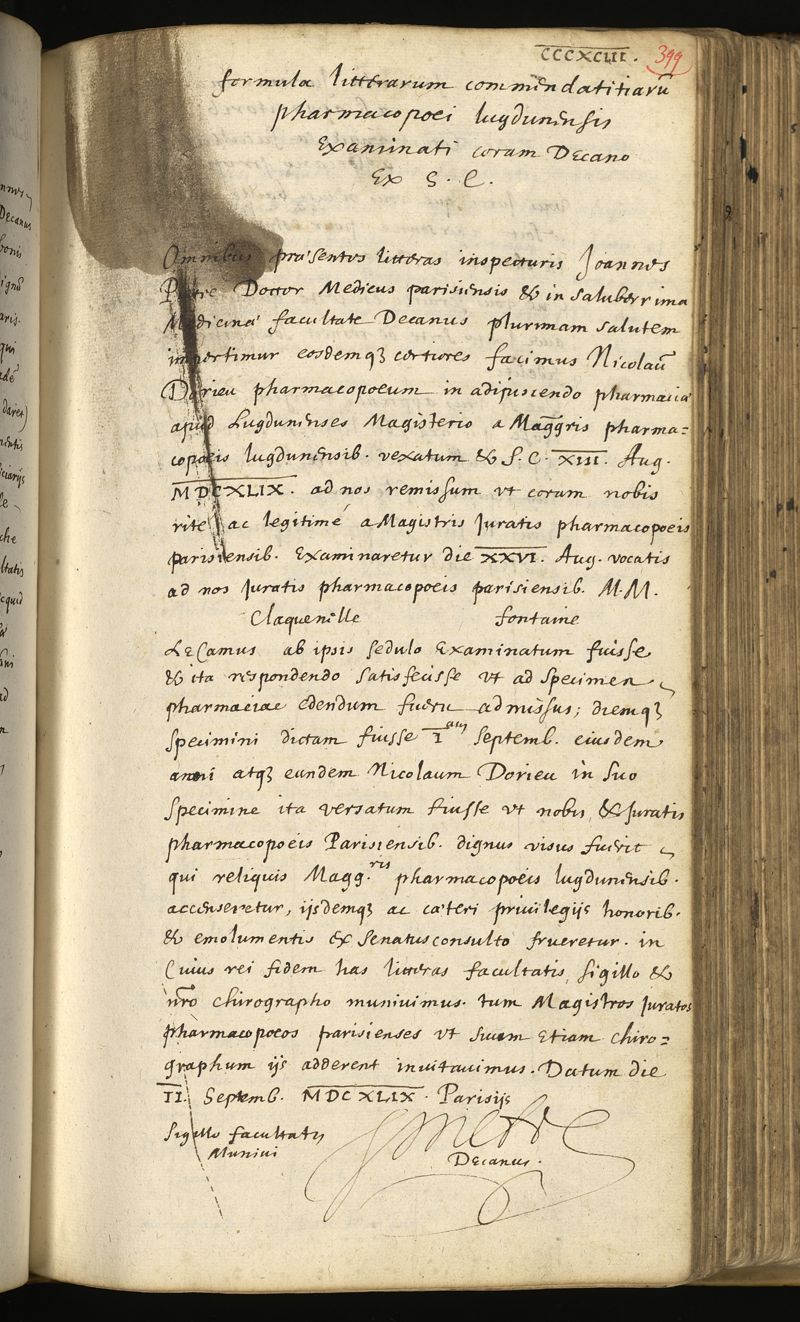 CCCXCIII. 399
formula litterarum commendatitiarū
pharmacopoei lugdunensis
Examinati coram Decano
Ex S. C.
Omnibus præsentes litteras inspecturis Joannes
Pietre Doctor Medicus parisiensis & in saluberrima
Medicinæ facultate Decanus plurimam salutem
impertimur eosdemqꝫ certiores facimus Nicolaū
Dorieu pharmacopoeum in adipiscendo pharmaciæ
apud Lugdunenses Magisterio a Maggris pharma=
copoeis lugdunensib. vexatum & S. C. XIII. Aug.
MDCXLIX. ad nos remissum vt coram nobis
rite ac legitimé a Magistris Juratis pharmacopoeis
parisiensib. Examinaretur die XXVI. Aug. vocatis
ad nos Juratis pharmacopoeis parisiensib. M.M.
Claquenelle fontaine
Le Camus ab ipsis sedulo Examinatum fuisse
& ita respondendo satisfecisse vt ad specimen
pharmaciae edendum fuerit admissus; diemqꝫ
specimini dictam fuisse I septemb. eiusdem
anni atqꝫ eundem Nicolaum Dorieu in suo
specimine ita versatum fuisse vt nobis, & Juratis
pharmacopoeis Parisiensib. dignus visus fuerit
qui reliquis Magg.ris pharmacopoeis lugdunensib.
accenseretur, ijsdemqꝫ ac cæteri priuilegijs honorib.
& emolumentis ex senatusconsulto frueretur. in
Cuius rei fidem has litteras facultatis, sigillo &
nr̃o chirographo muniuimus. tum Magistros Juratos
pharmacopoeos parisienses vt suum etiam chiro=
graphum ijs adderent inuitauimus. Datum die
II. Septemb. MDCXLIX. Parisijs
Sigillo facultatis
Muniui
Pietre
Decanus.